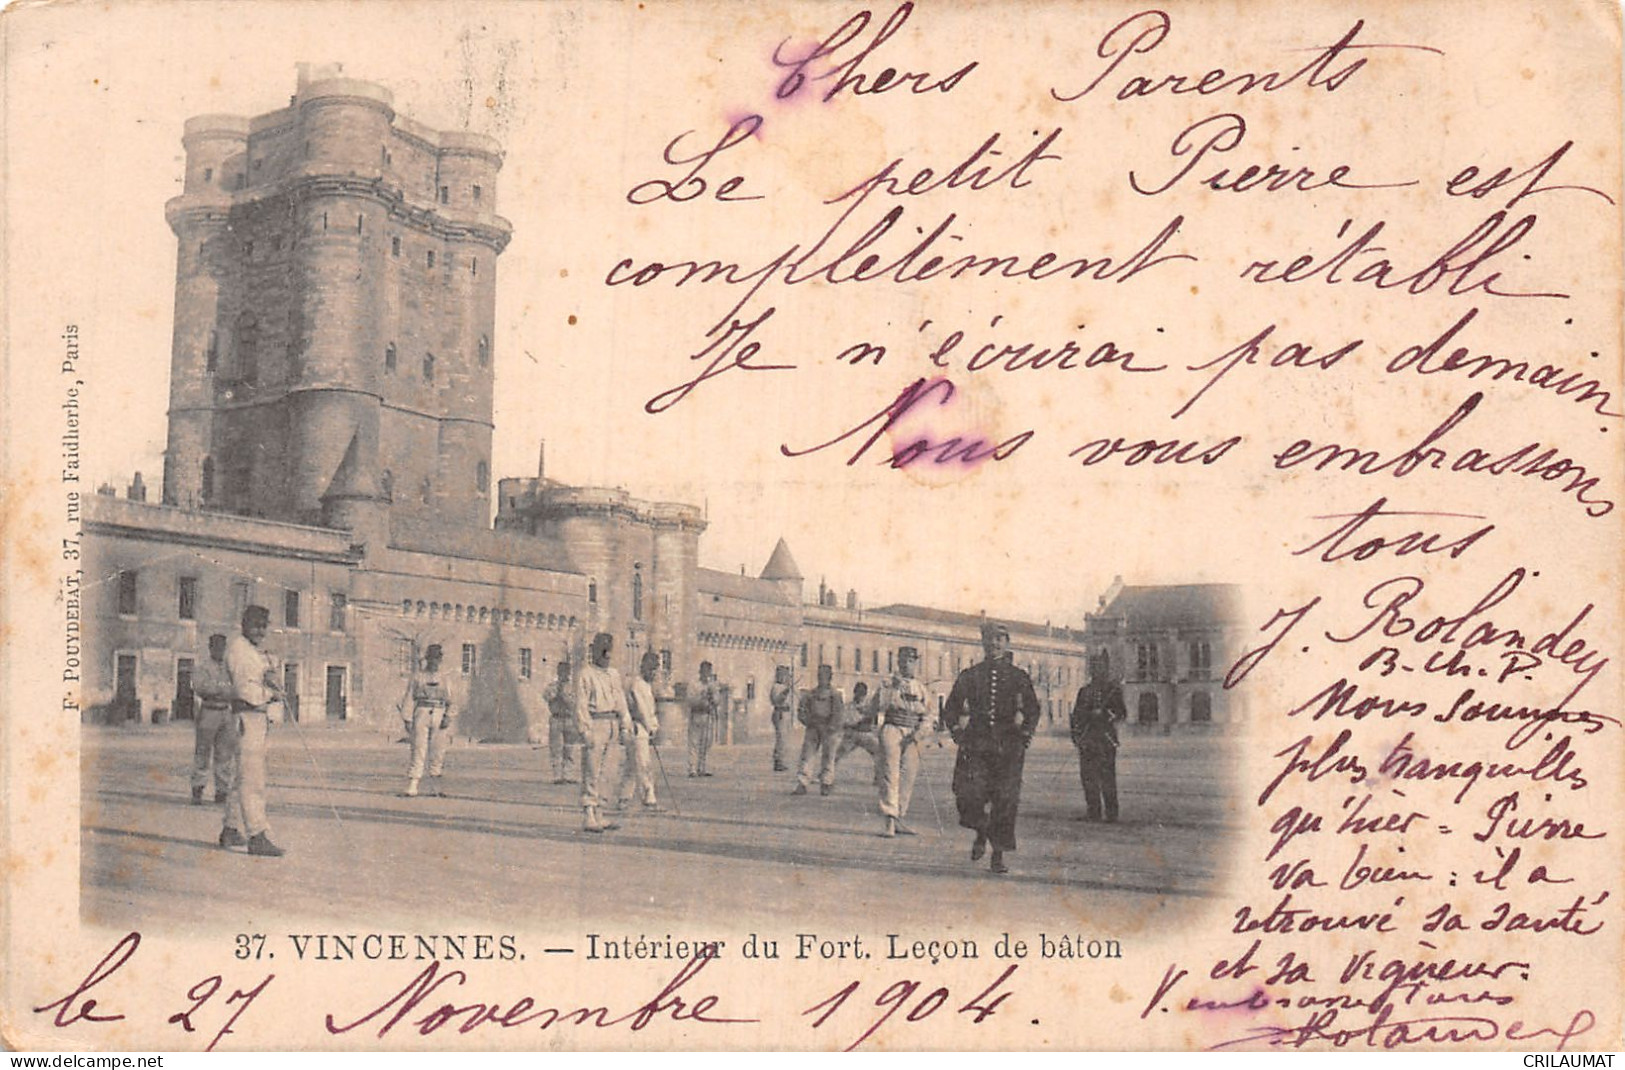 Chers Parents
Le petit Pierre est
complètement rétabli
Je n'écrirai pas demain
Nous vous embrassons
tous
J. Rolandey
B. Ch. P.
Nous sommes
plus tranquilles
qu'hièr = Pierre
va bien : il a
retrouvé sa santé
et sa vigueur.
Rolandey
F. POUYDEBAT, 37, rue Faidherbe, Paris
37. VINCENNES. — Intérieur du Fort. Leçon de bâton
le 27 Novembre 1904.
CRILAUMAT